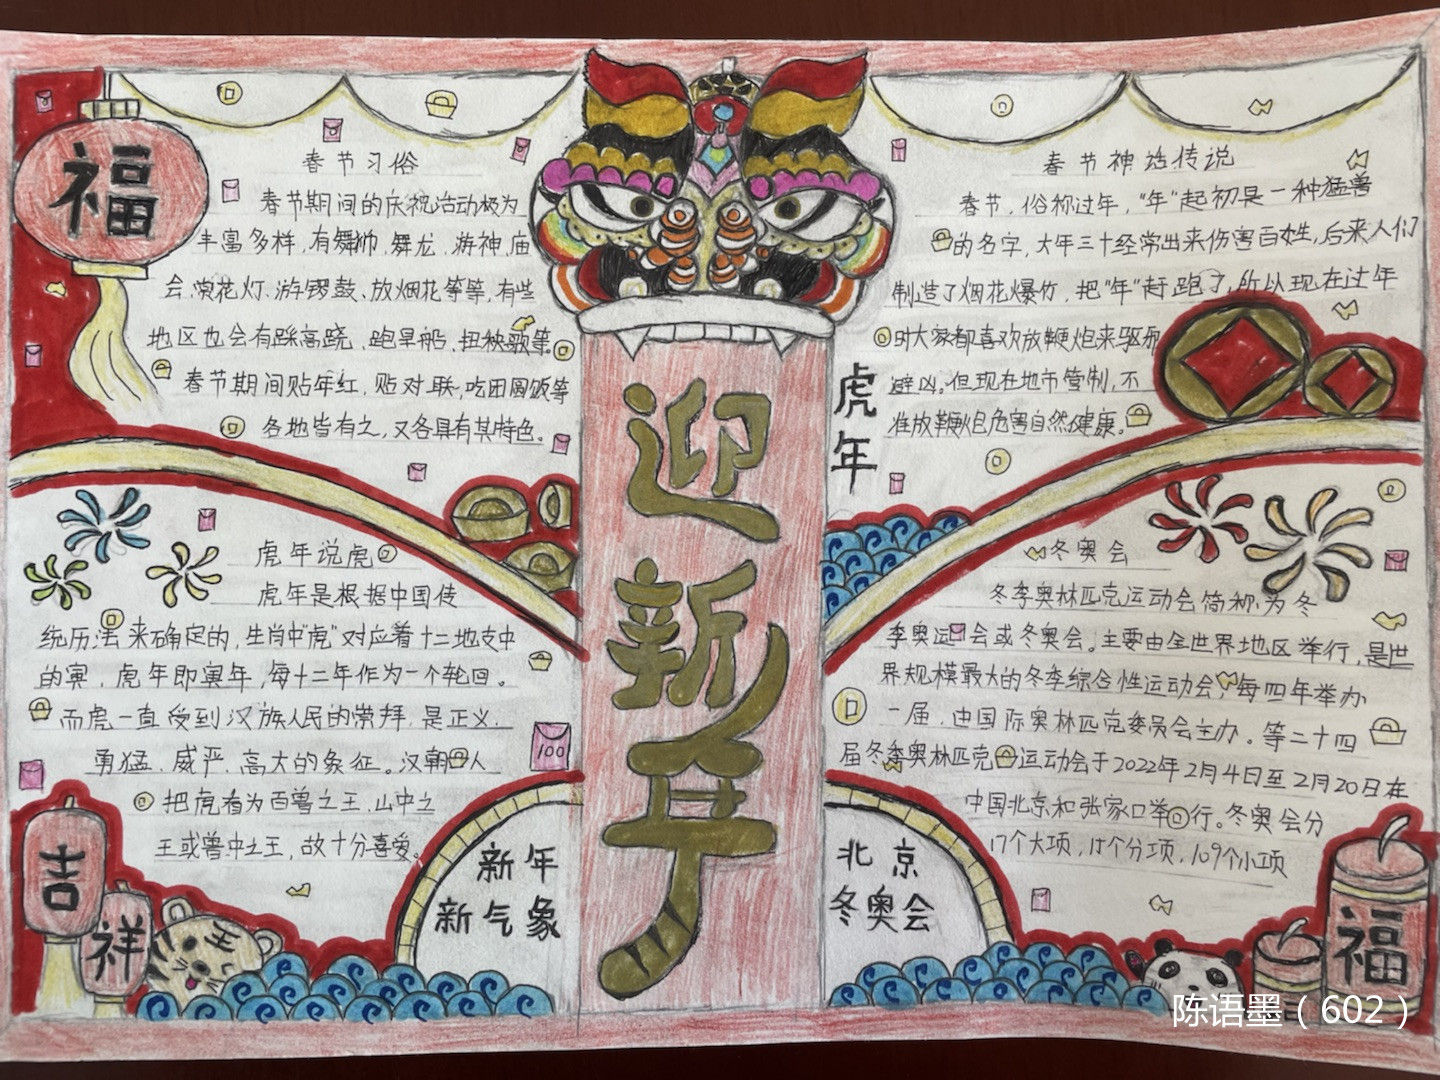 福
春节习俗
春节期间的庆祝活动极为
丰富多样，有舞狮、舞龙、游神、庙
会、赏花灯、游锣鼓、放烟花等等，有些
地区也会有踩高跷、跑旱船、扭秧歌等。
春节期间贴年红，贴对联，吃团圆饭等
各地皆有之，又各具有其特色。
虎年说虎
虎年是根据中国传
统历法来确定的，生肖中"虎"对应着十二地支中
的寅，虎年即寅年，每十二年作为一个轮回。
而虎一直受到汉族人民的崇拜，是正义、
勇猛、威严、高大的象征。汉朝人
把虎看为百兽之王，山中之
王或兽中之王，故十分喜爱。
100
吉
祥
王
新年
新气象
迎
新
年
虎
年
春节神话传说
春节，俗称过年，"年"起初是一种猛兽
的名字，大年三十经常出来伤害百姓，后来人们
制造了烟花爆竹，把"年"赶跑了，所以现在过年
时大家都喜欢放鞭炮来驱邪
避凶。但现在城市管制，不
准放鞭炮危害自然健康。
冬奥会
冬季奥林匹克运动会简称为冬
季奥运会或冬奥会。主要由全世界地区举行，是世
界规模最大的冬季综合性运动会，每四年举办
一届，由国际奥林匹克委员会主办。第二十四
届冬季奥林匹克运动会于2022年2月4日至2月20日在
中国北京和张家口举行。冬奥会分
17个大项，15个分项，109个小项
北京
冬奥会
福
陈语墨（602）